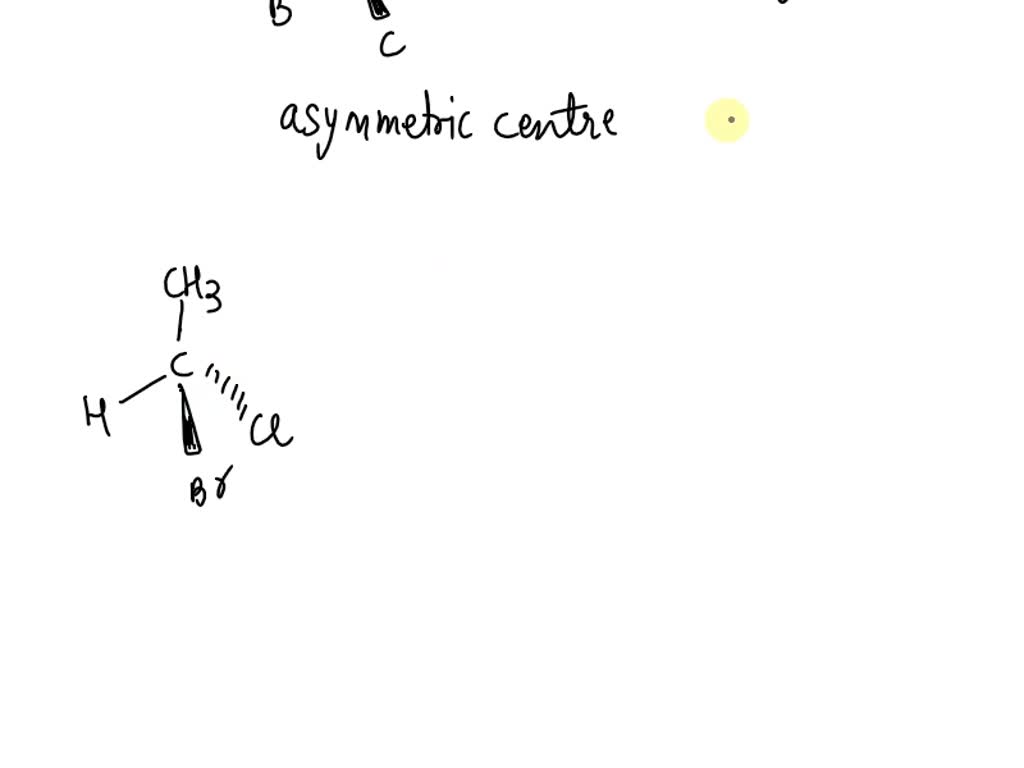 B
C
asymmetric centre
CH3
C
H
Cl
Br